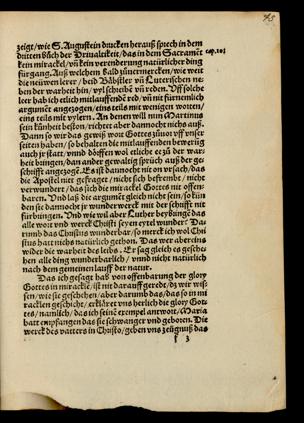 45
zeigt / wie S. Augustein drucken herauß sprech in dem
dritten bůch der Driualtikeit / das in dem Sacramēt cap. 10.
kein mirackel / vn̄ kein verenderung natürlicher ding
fürgang. Auß welchem bald zůuermercken / wie weit
die neüwen lerer / beid Bäbstler vn̄ Luterischen ne-
ben der warheit hin / vyl schreibē vn̄ reden. Vff solche
leer hab ich etlich mitlauffende red / vn̄ mit fürnemlich
argumēt angezogen / eins teils mit wenigen worten /
eins teils mit vylern. An denen will nun Martinus
sein künheit beston / richtet aber dannocht nichs auß.
Dann so wir das gewiß wort Gottes zůuor vff vnser
seiten haben / so behalten die mitlauffenden bewerūg
auch jr statt / vnnd dörffen wol etliche ee zů der war-
heit bringen / dan ander gewaltig sprüch auß der ge-
schrifft angezogē. Es ist dannocht nit on vrsach / das
die Apostel niet gefraget / nicht sich befremt / nicht
verwundert / das sich die mirackel Gottes nit offen-
baren. Vnd laß die argumēt gleich nicht sein / so kün
den sie dannocht jr wunderwerck mit der schrifft nit
fürbringen. Vnd wie wil aber Luther beybringē das
alle wort vnd werck Christi seyen eytel wunder? Da-
rumb das Christus wunderbar / so merck ich wol Chri
stus hatt nichts natürlich gethon. Das wer aber eins
wider die warheit des leibs. Er sag gleich es gesche-
hen alle ding wunderbarlich / vnnd nicht natürlich
nach dem gemeinen lauff der natur.
Das ich gesagt hab von offenbarung der glory
Gottes in mirackelē / ist mit darauff geredt / dz wir wis-
sen / wie sie geschehen / aber darumb das / das so in mi
rackelen geschicht / erkläret vns herlich die glory Got-
tes / namlich / das ich seine exempel antwort / Maria
hatt empfangen das sie schwanger vnd geboren. Die
werck des vatters in Christo / geben vns zeügnuß das
k 3